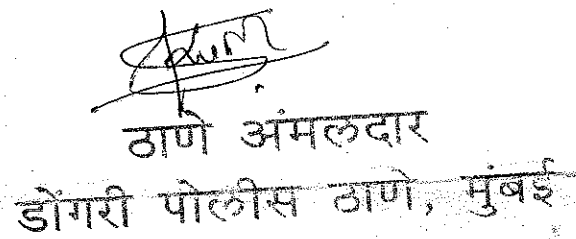 ठाणे अंमलदार
डोंगरी पोलीस ठाणे, मुंबई